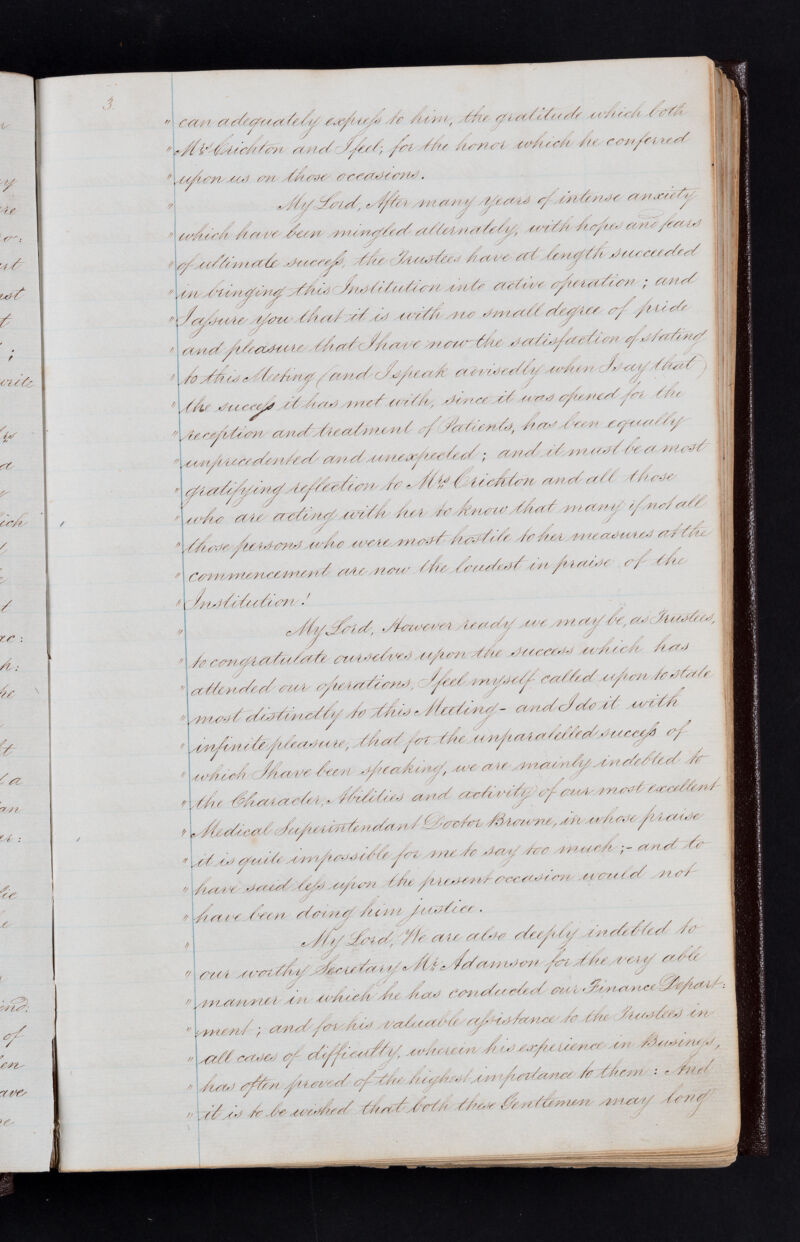 3
" can adequately express to him, the gratitude which both
" Mrs Crichton and I feel; for the honor which he conferred
" upon us on those occasions.
" My Lord, After many years of intense anxiety
" which have been mingled alternately, with hopes and fears
" of ultimate success, the Trustees have at length succeeded
" in bringing this Institution into active operation; and
" I assure you that it is with no small degree of pride
" and pleasure that I have now the satisfaction of stating
" to this Meeting (and I speak advisedly when I say that)
" the success it has met with, since it was opened for the
" reception and treatment of Patients, has been equally
" unprecedented and unexpected; and it must be a most
" gratifying reflection to Mrs Crichton and all those
" who are acting with her to know that many if not all
" those persons who were most hostile to her measures at the
" commencement are now the loudest in praise of the
" Institution!
" My Lord, However ready we may be, as Trustees,
" to congratulate ourselves upon the success which has
" attended our operations, I feel myself called upon to state
" most distinctly to this Meeting - and I do it with
" infinite pleasure, that for the unparalelled success of
" which I have been speaking, we are mainly indebted to
" the Character, Abilities and activity of our most excellent
" Medical Superintendant Doctor Browne, in whose praise
" it is quite impossible for me to say too much;- and to
" have said less upon the present occasion would not
" have been doing him justice.
" My Lord, We are also deeply indebted to
" our worthy Secretary Mr Adamson for the very able
" manner in which he has conducted our Finance Depart:
" :ment; and for his valuable assistance to the Trustees in
" all cases of difficulty, wherein his experience in Business,
" has often proved of the highest importance to them: And
" it is to be wished that both these Gentlemen may long